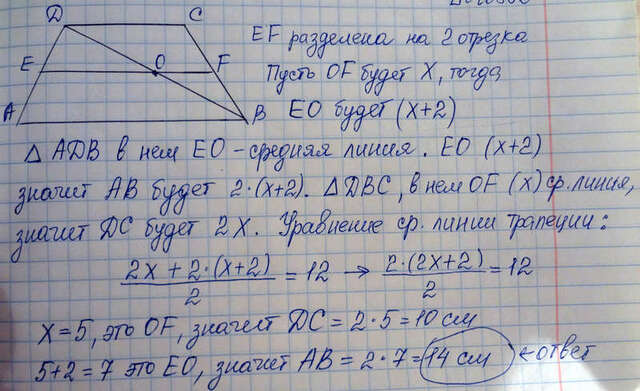 D C
EF разделена на 2 отрезка
E O F
Пусть OF будет X, тогда
A B
EO будет (x+2)
△ ADB в нем EO - средняя линия. EO (x+2)
значит AB будет 2·(x+2). △DBC, в нем OF (x) ср. линия,
значит DC будет 2X. Уравнение ср. линии трапеции:
(2x + 2·(x+2))/2 = 12 → (2·(2x+2))/2 = 12
X = 5, это OF, значит DC = 2·5 = 10 см
5+2 = 7 это EO, значит AB = 2·7 = 14 см ← ответ